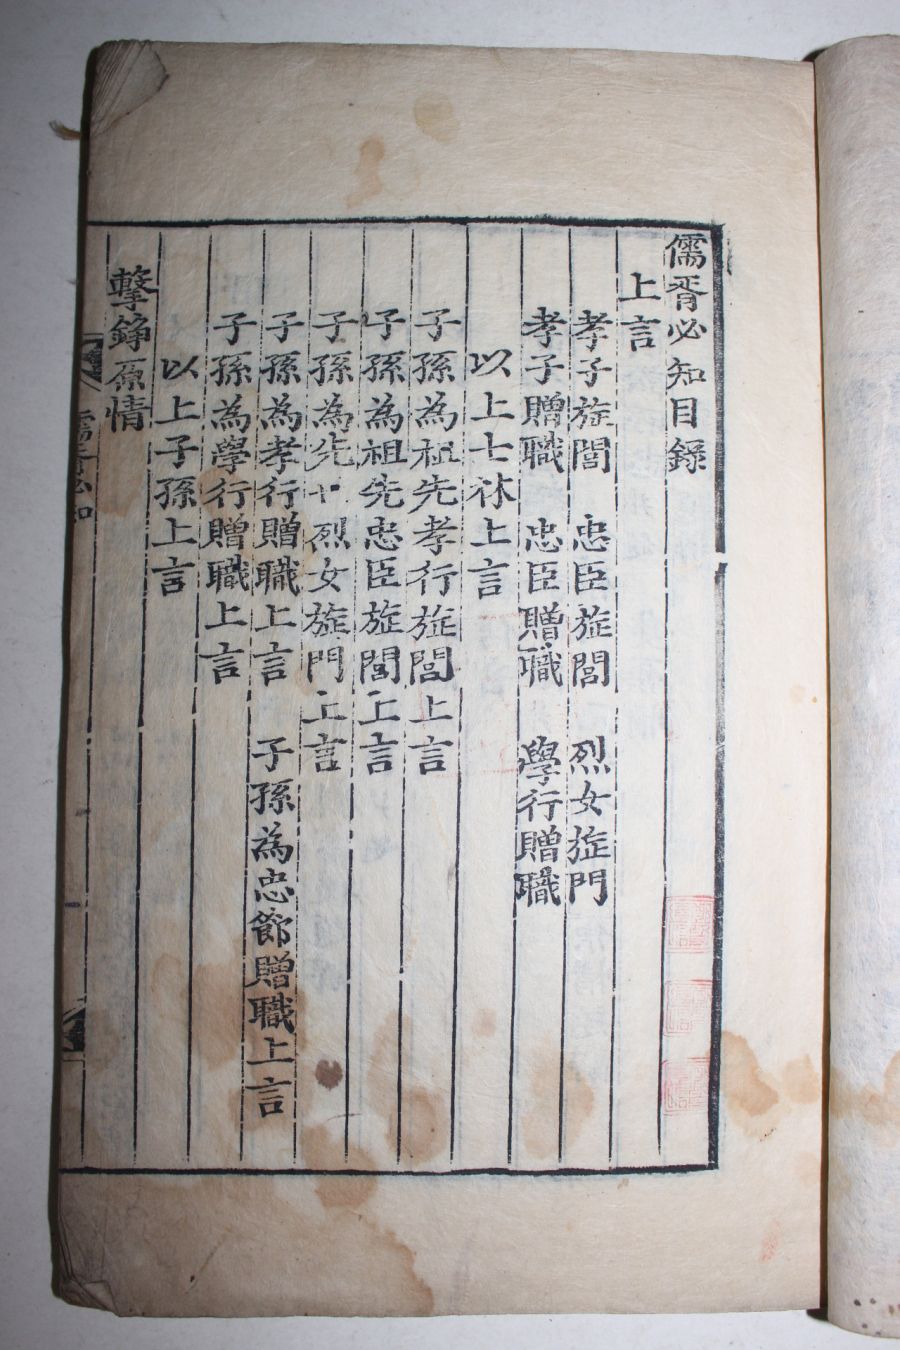 儒胥必知目錄
上言
孝子㫌閭 忠臣㫌閭 烈女㫌門
孝子贈職 忠臣贈職 學行贈職
以上士林上言
子孫為祖先孝行㫌閭上言
子孫為祖先忠臣㫌閭上言
子孫為先 烈女㫌門上言
子孫為孝行贈職上言 子孫為忠節贈職上言
子孫為學行贈職上言
以上子孫上言
擊錚原情
儒胥必知